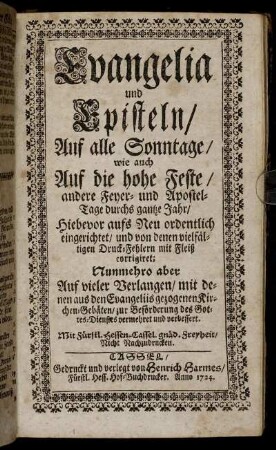 Evangelia
und
Episteln/
Auf alle Sonntage/
wie auch
Auf die hohe Feste/
andere Feyer- und Apostel-
Tage durchs gantze Jahr/
Hiebevor aufs Neu ordentlich
eingerichtet/ und von denen vielfäl-
tigen Druck-Fehlern mit Fleiß
corrigiret;
Nunmehro aber
Auf vieler Verlangen/ mit de-
nen aus den Evangeliis gezogenen Kir-
chen-Gebäten/ zur Beförderung des Got-
tes-Dienstes vermehret und verbessert.
Mit Fürstl. Hessen-Cassel. gnäd. Freyheit/
Nicht Nachzudrucken.
CASSEL/
Gedruckt und verlegt von Henrich Harmes/
Fürstl. Hess. Hof-Buchdrucker. Anno 1724.